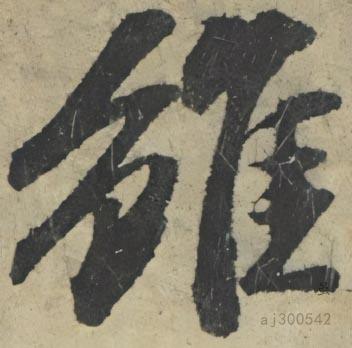 維
aj300542